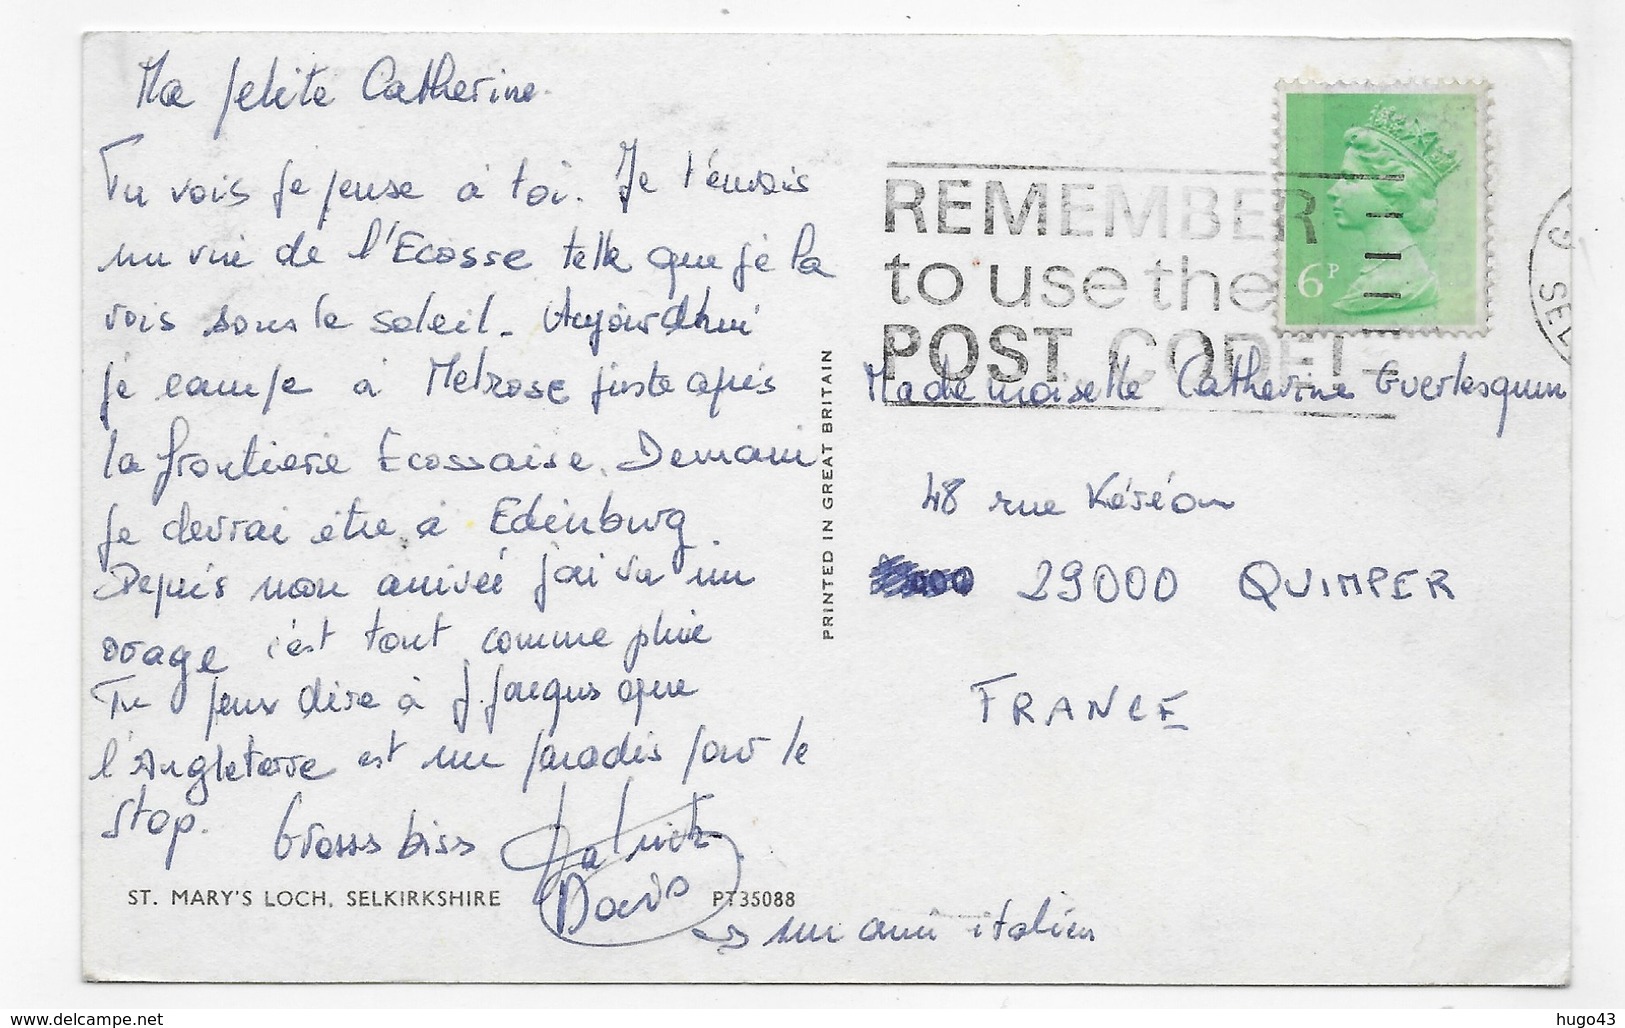 Ma petite Catherine.
Tu vois je pense à toi. Je t'envois
un vue de l'Ecosse telle que je la
vois sous le soleil. Aujourdhui
je campe à Melrose juste après
la frontiere Ecossaise. Demain
je devrai être à Edinburg
Depuis mon arrivée j'ai vu un
orage c'est tout comme pluie
Tu peux dire à J. Jacques que
l'Angleterre est un paradis pour le
stop. Grosses biss Patrick
Dario
un ami italien
ST. MARY'S LOCH, SELKIRKSHIRE PT35088
PRINTED IN GREAT BRITAIN
REMEMBER
to use the
POST CODE!
6P
SEL
Mademoiselle Catherine Guerlesquin
48 rue Kéréon
29000 QUIMPER
FRANCE
www.delcampe.net
hugo43